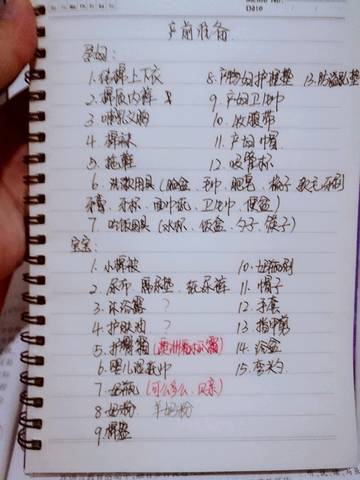 产前准备
孕妇:
1. 纯棉上下衣 8. 产妇护理垫 13. 防溢乳垫
2. 棉质内裤 9. 产妇卫生巾
3. 哺乳文胸 10. 收腹带
4. 棉袜 11. 产妇帽
5. 拖鞋 12. 吸管杯
6. 洗漱用具(脸盆、毛巾、肥皂、梳子
牙膏、牙杯、面巾纸、卫生巾、便盆)
7. 吃饭用具(水杯、饭盒、勺子、筷子)
宝宝:
1. 小棉被 10. 奶瓶刷
2. 尿布、隔尿垫、纸尿裤 11. 帽子
3. 沐浴露 ? 12. 手套
4. 护肤油 ? 13. 指甲剪
5. 护臀霜 14. 浴盆
6. 婴儿湿纸巾 15. 
7. 奶瓶(可么多么、贝亲)
8. 奶粉 羊奶粉
9.